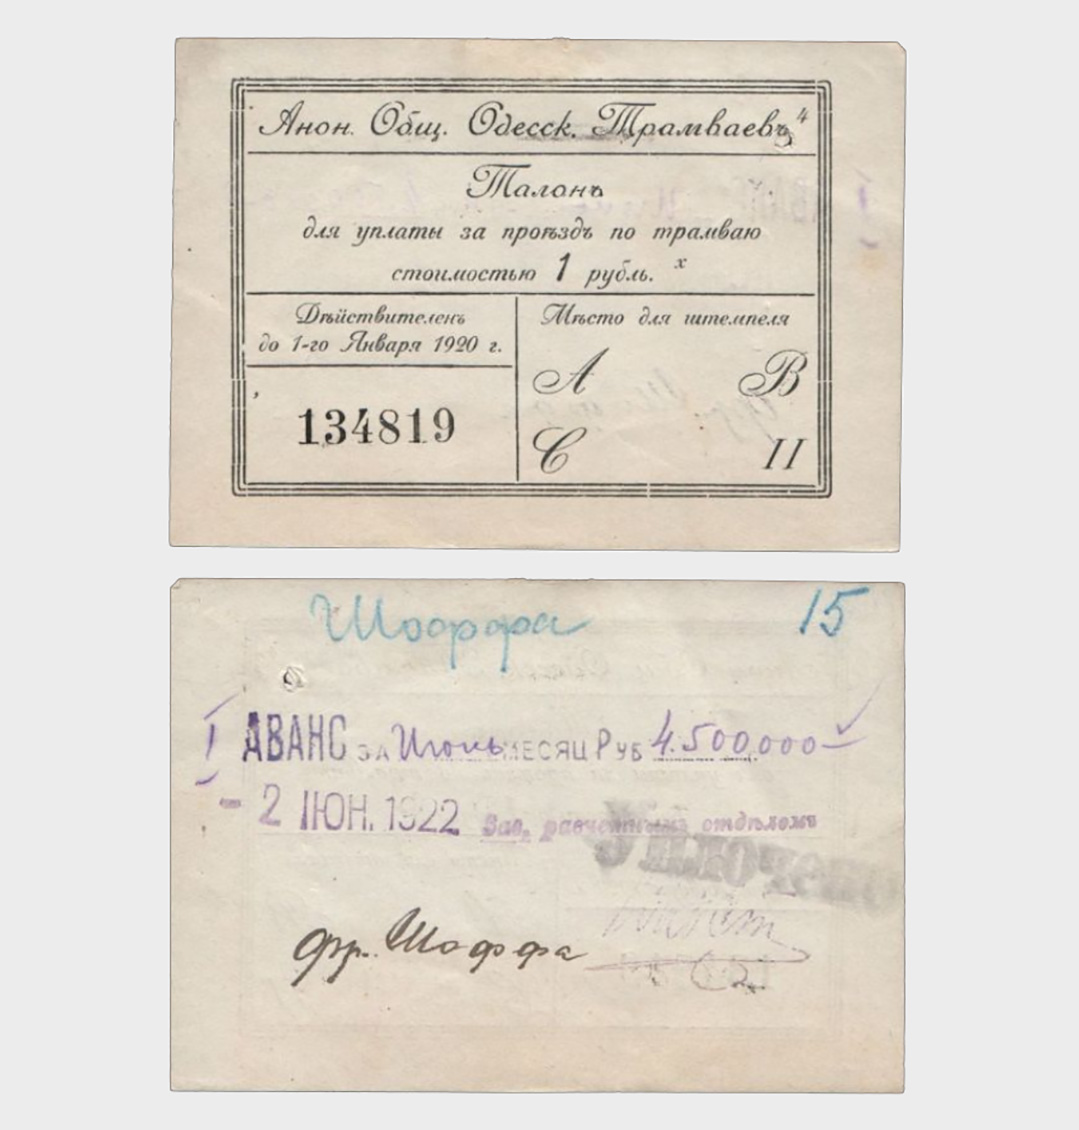 Анон. Общ. Одесск. Трамваевъ 4
Талонъ
для уплаты за проѣздъ по трамваю
стоимостью 1 рубль. x
Дѣйствителенъ
до 1-го Января 1920 г.
134819
Мѣсто для штемпеля
А В
С II
Шоффа 15
I АВАНС за Июнь МЕСЯЦ РУБ 4.500.000 —
- 2 ІЮН. 1922 Зав. расчетнымъ отдѣломъ
фр. Шоффа